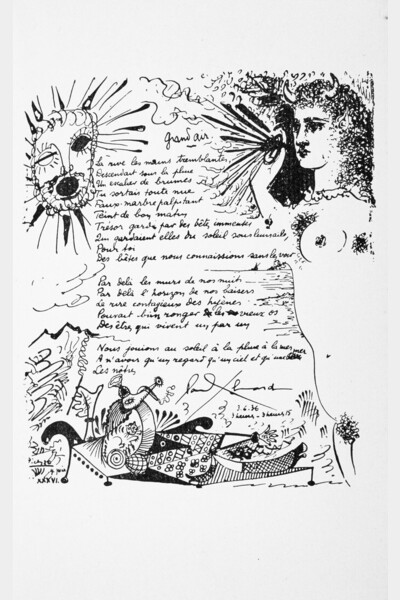 Grand air.
La rive les mains tremblantes,
Descendait sous la pluie
Un escalier de brumes
Tu sortais toute nue
Faux marbre palpitant
Teint de bon matin
Trésor gardé par des bêtes immenses
Qui gardaient elles du soleil sous leurs ailes
Pour toi
Des bêtes que nous connaissions sans les voir
Par delà les murs de nos nuits
Par delà l'horizon de nos baisers
Le rire contagieux des hyènes
Pouvait bien ronger les vieux os
Des êtres qui vivent un par un
Nous jouions au soleil à la pluie à la mer
A n'avoir qu'un regard qu'un ciel et qu'une mer
Les nôtres
Paul Eluard
3.6.36
3 heures - 3 heures 15
XXXVI.